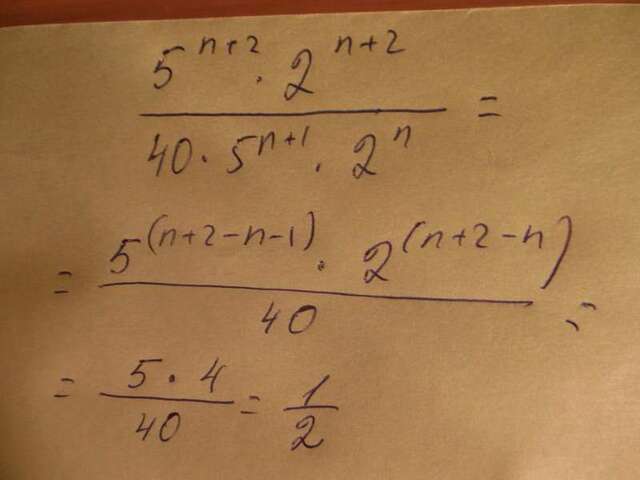 5^{n+2} · 2^{n+2}
40 · 5^{n+1} · 2^{n} =
= 5^{(n+2-n-1)} · 2^{(n+2-n)}
40 =
= 5 · 4 / 40 = 1 / 2